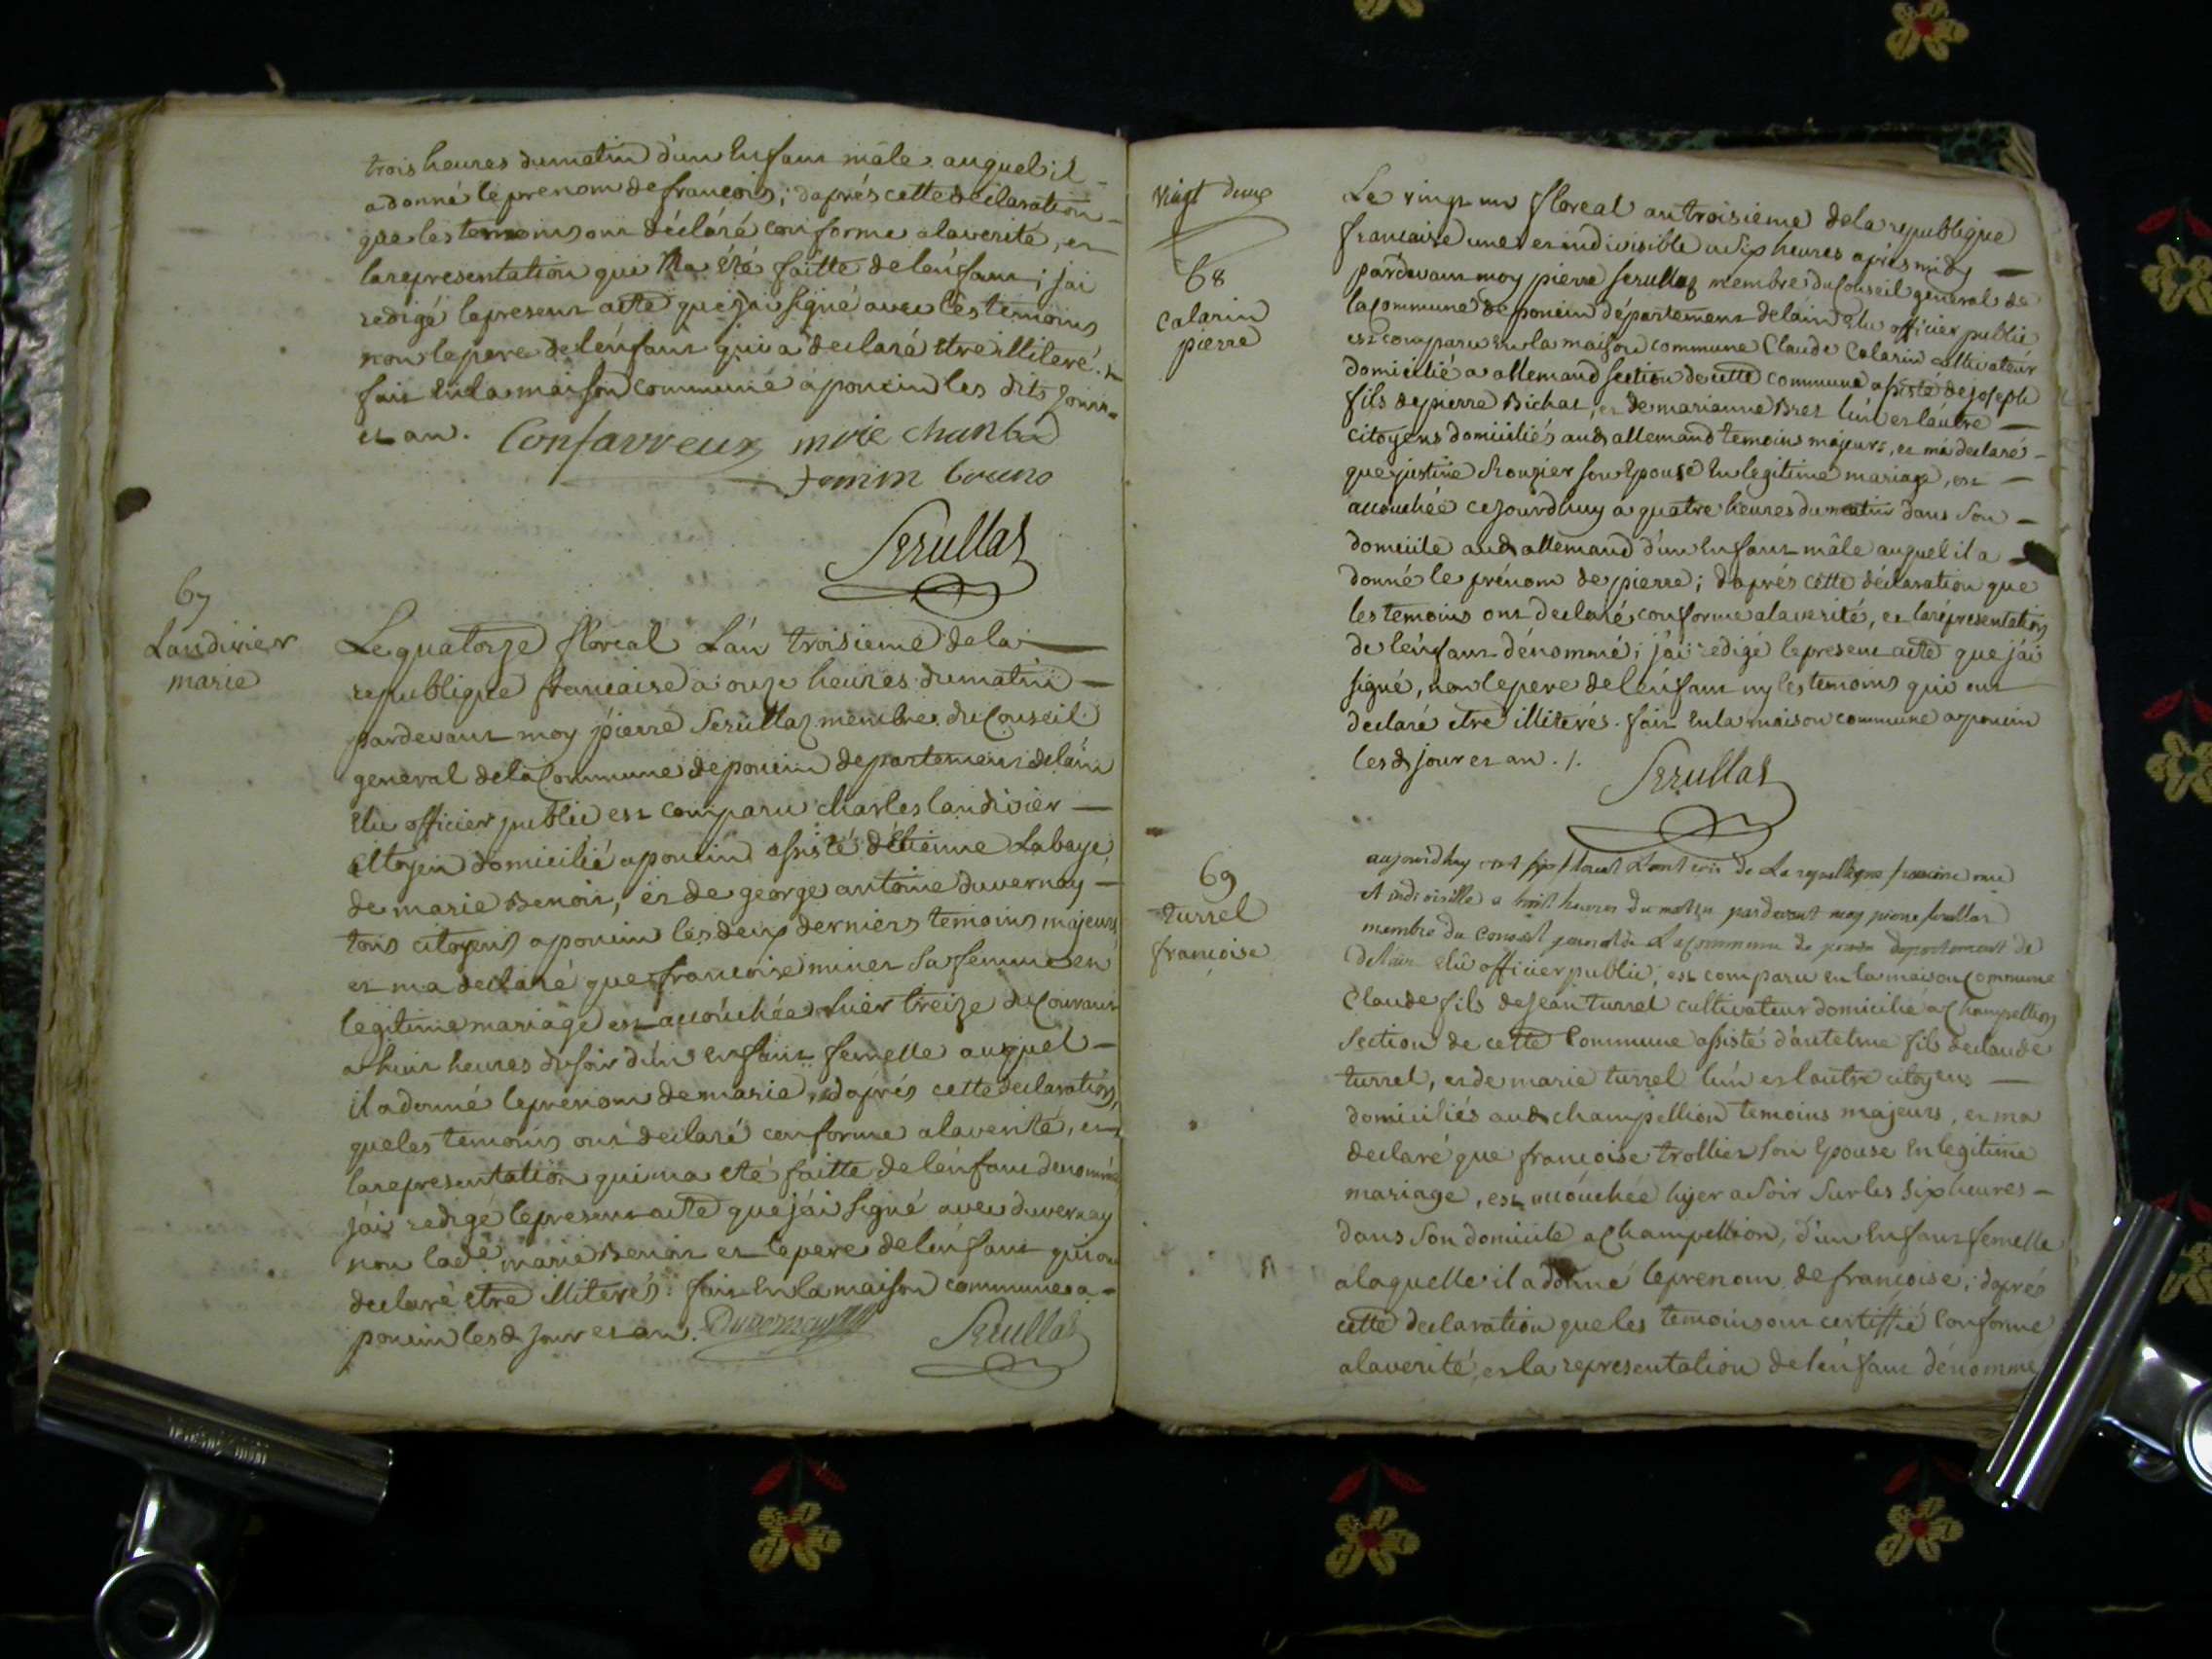 trois heures du matin d'un Enfant mâle auquel il
a donné le prenom de francois; d'aprés cette declaration
que les temoins ont déclaré conforme a la verité, et
la representation qui Ma été faitte de lénfant; jai
redigé le present acte que jai signé avec les temoins
non le pere de lénfant qui a declaré etre illiteré. /.
fait En la maison commune à poncin les dits jour
et an. Confavreux
Serullaz
67
Landivier
marie
Le quatorze floreal L'án troisieme de la
republique francaise a onze heures du matin
pardevant moy pierre Serullaz membre du Conseil
general de la Commune de poncin departement de lain
Elu officier public est comparu charles landivier
citoyen domicilié a poncin assisté détienne Labaye
de marie Benoit, et de george antoine duvernay
tous citoyens a poncin les deux derniers temoins majeurs
et ma declaré que francoise minet sa femme en
legitime mariage est accouchée hier treize du Courant
a huit heures du soir d'un Enfant femelle auquel
il a donné le prénom de marie, d'aprés cette declaration,
que les temoins ont declaré conforme a la verité, et
la representation qui ma eté faitte de lénfant denommé
jái redigé le present acte que jái signé avec duvernay
non lade. marie Benoit et le pere de lénfant qui ont
declaré etre illiterés. fait En la maison commune a
poncin lesd jour et an. Duvernay Serullaz
vingt deux
68
Calarin
pierre
Le vingt un floreal an troisieme de la republique
francaise une et indivisible a six heures aprés midy
pardevant moy pierre Serullaz membre du Conseil general de
la commune de poncin département de lain Elu officier public
est comparu En la maison commune Claude Calarin cultivateur
domicilié a allemand section de cette commune assisté de joseph
fils de pierre Bichat, et de marianne Bret lún et láutre
citoyens domiciliés aud allemand temoins majeurs, et má declaré
que justine Rougier son Epouse En legitime mariage, est
accouchée cejourdhuy a quatre heures du matin dans Son
domicile aud allemand d'un Enfant mâle auquel il a
donné le prénom de pierre; d'aprés cette déclaration que
les temoins ont declaré conforme a la verité, et la répresentation
de lénfant dénommé; jái redigé le present acte que jái
signé, non le pere de lénfant ny les temoins qui ont
declaré etre illiterés. fait En la maison commune a poncin
lesd jour et an. /. Serullaz
69
turrel
francoise
aujourdhuy vint six floreal Lant trois de La republique francoise une
et indivisible a huit heures du matin pardevant moy pierre serullaz
membre du Conseil general de La Commune de poncin departement de
de lain Elû officier public, est comparu en la maison commune
Claude fils de jean turrel cultivateur domicilié a Champellion
Section de cette Commune assisté d'antelme fils de claude
turrel, et de marie turrel lún et lautre citoyens
domiciliés aud champellion temoins majeurs, et ma
declaré que francoise trollier son Epouse En legitime
mariage, est accouchée hyer a soir sur les six heures
dans Son domicile a Champellion, d'un Enfant femelle
a laquelle il a donné le prenom de francoise; daprés
cette declaration que les temoins ont certiffié Conforme
a la verité, et la representation de lénfant dénommé